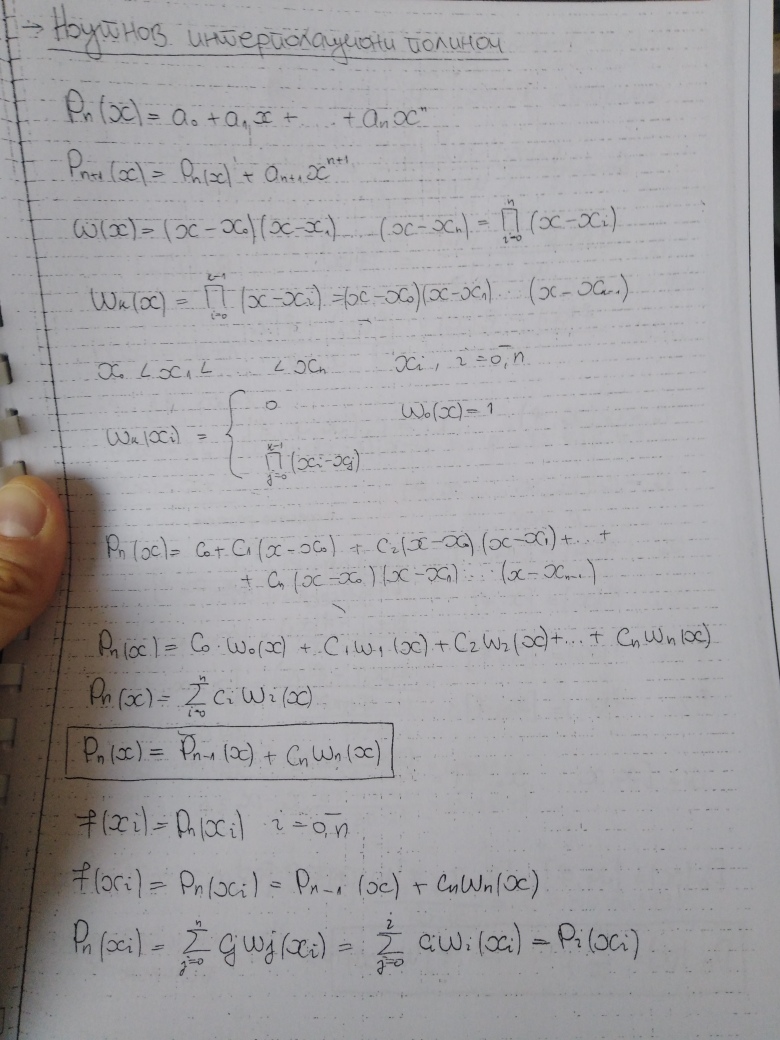 → Њутнов интерполациони полином
Pn(x) = a₀ + a₁x + ... + aₙxⁿ
Pn+1(x) = Pn(x) + aₙ₊₁xⁿ⁺¹
ω(x) = (x - x₀)(x - x₁) ... (x - xₙ) = ∏_{i=0}^{n} (x - xᵢ)
ωₖ(x) = ∏_{i=0}^{k-1} (x - xᵢ) = (x - x₀)(x - x₁) ... (x - xₖ₋₁)
x₀ < x₁ < ... < xₙ xᵢ, i = 0,n
ωₖ(xᵢ) = { 0 ω₀(x) = 1
∏_{j=0}^{k-1} (xᵢ - xⱼ)
Pn(x) = c₀ + c₁(x - x₀) + c₂(x - x₀)(x - x₁) + ... +
+ cₙ(x - x₀)(x - x₁) ... (x - xₙ₋₁)
Pn(x) = c₀ · ω₀(x) + c₁ω₁(x) + c₂ω₂(x) + ... + cₙωₙ(x)
Pn(x) = ∑_{i=0}^{n} cᵢωᵢ(x)
Pn(x) = Pn-1(x) + cₙωₙ(x)
f(xᵢ) = Pn(xᵢ) i = 0,n
f(xᵢ) = Pn(xᵢ) = Pn-1(x) + cₙωₙ(x)
Pn(xᵢ) = ∑_{j=0}^{n} cⱼωⱼ(xᵢ) = ∑_{j=0}^{i} cᵢωᵢ(xᵢ) = Pᵢ(xᵢ)